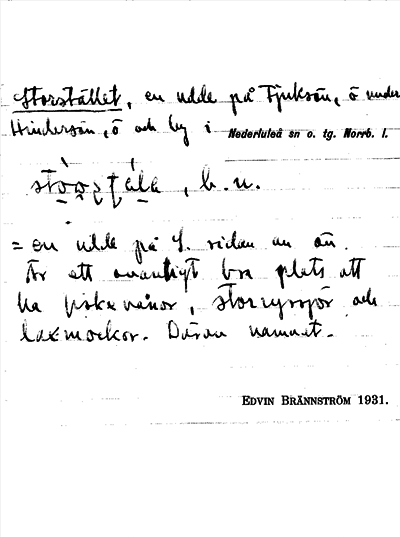 Storstället, en udde på Tjuksön, ö under
Hindersön, ö och by i Nederluleå sn o. tg. Norrb. l.
, b. n.
= en udde på S. sidan av ön.
Är ett ovanligt bra plats att
ha fiskevänor, storryssjor och
laxmockor. Därav namnet.
EDVIN BRÄNNSTRÖM 1931.